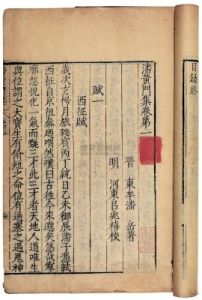 潘黃門集卷第一
晉 東牟潘 岳著
明 河東呂兆禧校
賦一
西征賦
歲次玄枵月旅蕤賓丙丁統日乙未御辰潘子憑軾
西征自京徂秦迺喟然歎曰古往今來邈矣悠哉寥
廓惚恍化一氣而甄三才此三才者天地人道唯生
與位謂之大寶生有脩短之命位有通塞之遇鬼神